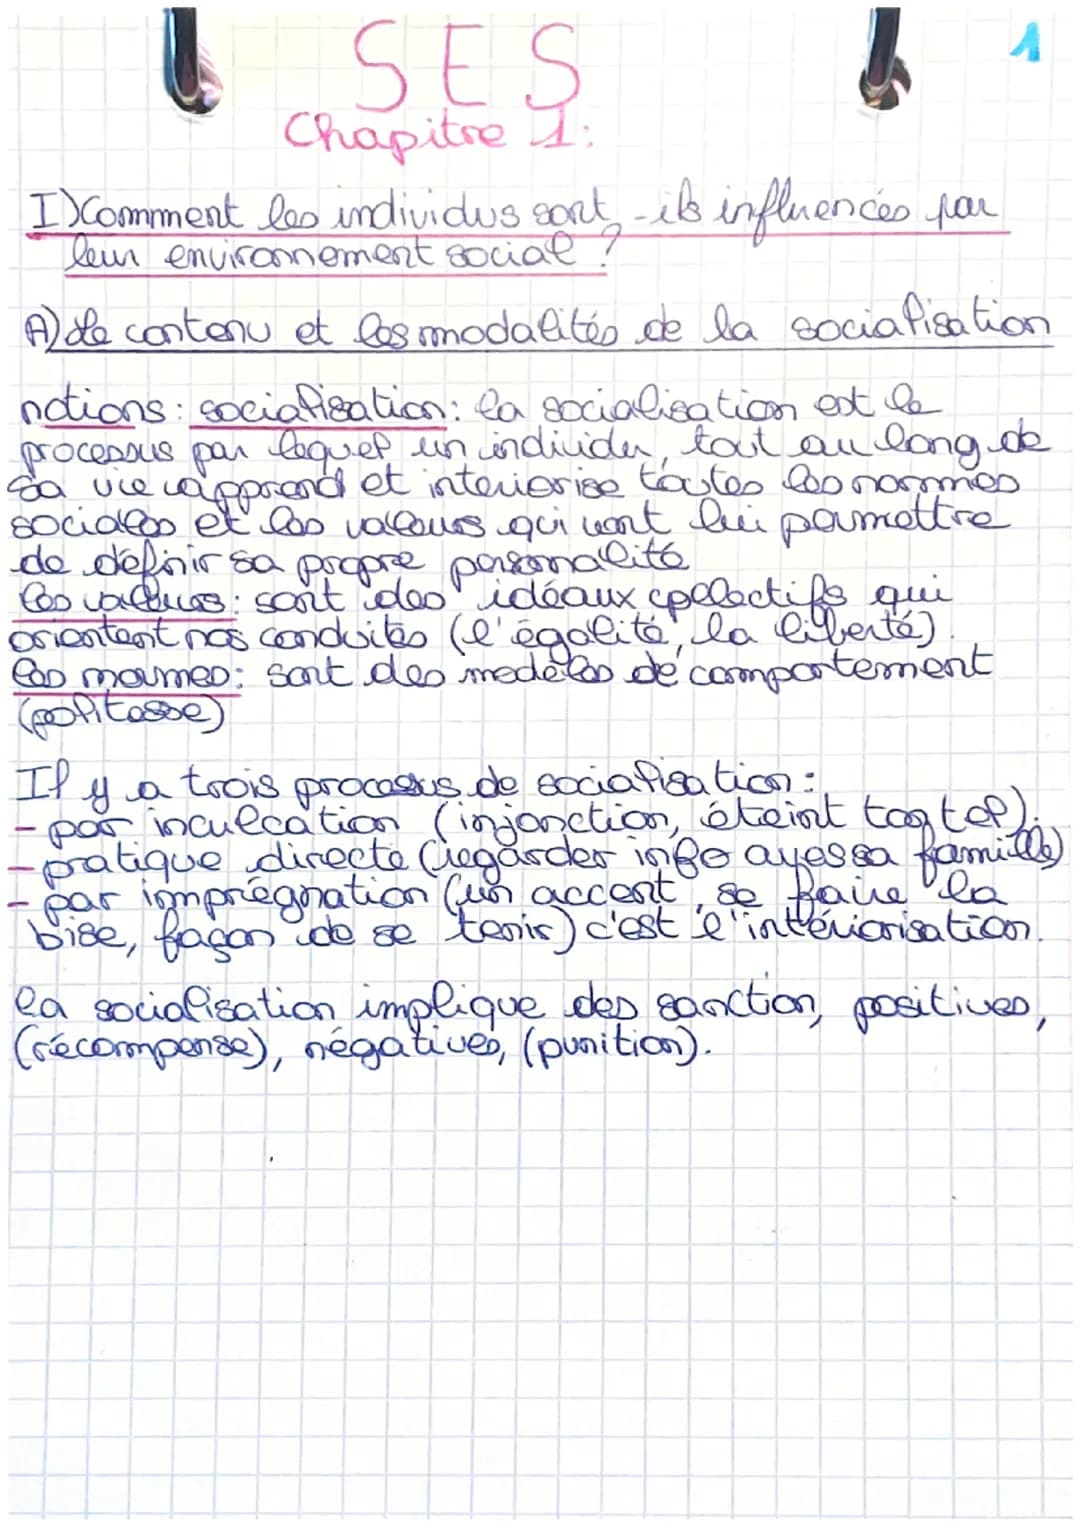 1
SES
Chapitre 1:
I) Comment les individus sont-ils influencés par
leur environnement social ?
A) Le contenu et les modalités de la socialisation
notions : socialisation : la socialisation est le
processus par lequel un individu, tout au long de
sa vie apprend et interiorise toutes les normes
sociales et les valeurs qui vont lui permettre
de définir sa propre personnalité
les valeurs : sont des idéaux collectifs qui
orientent nos conduites (l'égalité, la liberté).
les normes : sont des modèles de comportement
(politesse)
Il y a trois processus de socialisation :
- par inculcation (injonction, éteint ton tel).
- pratique directe (regarder info avec sa famille)
- par imprégnation (un accent, se faire la
bise, façon de se tenir) c'est l'intériorisation.
la socialisation implique des sanction, positives,
(récompense), négatives, (punition).